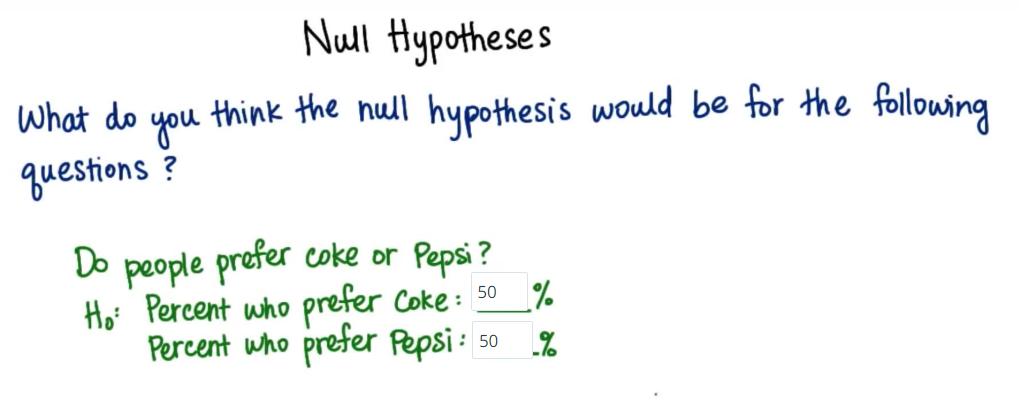 Null Hypotheses
What do you think the null hypothesis would be for the following
questions ?
Do people prefer coke or Pepsi ?
H₀: Percent who prefer Coke : 50 %
Percent who prefer Pepsi : 50 %